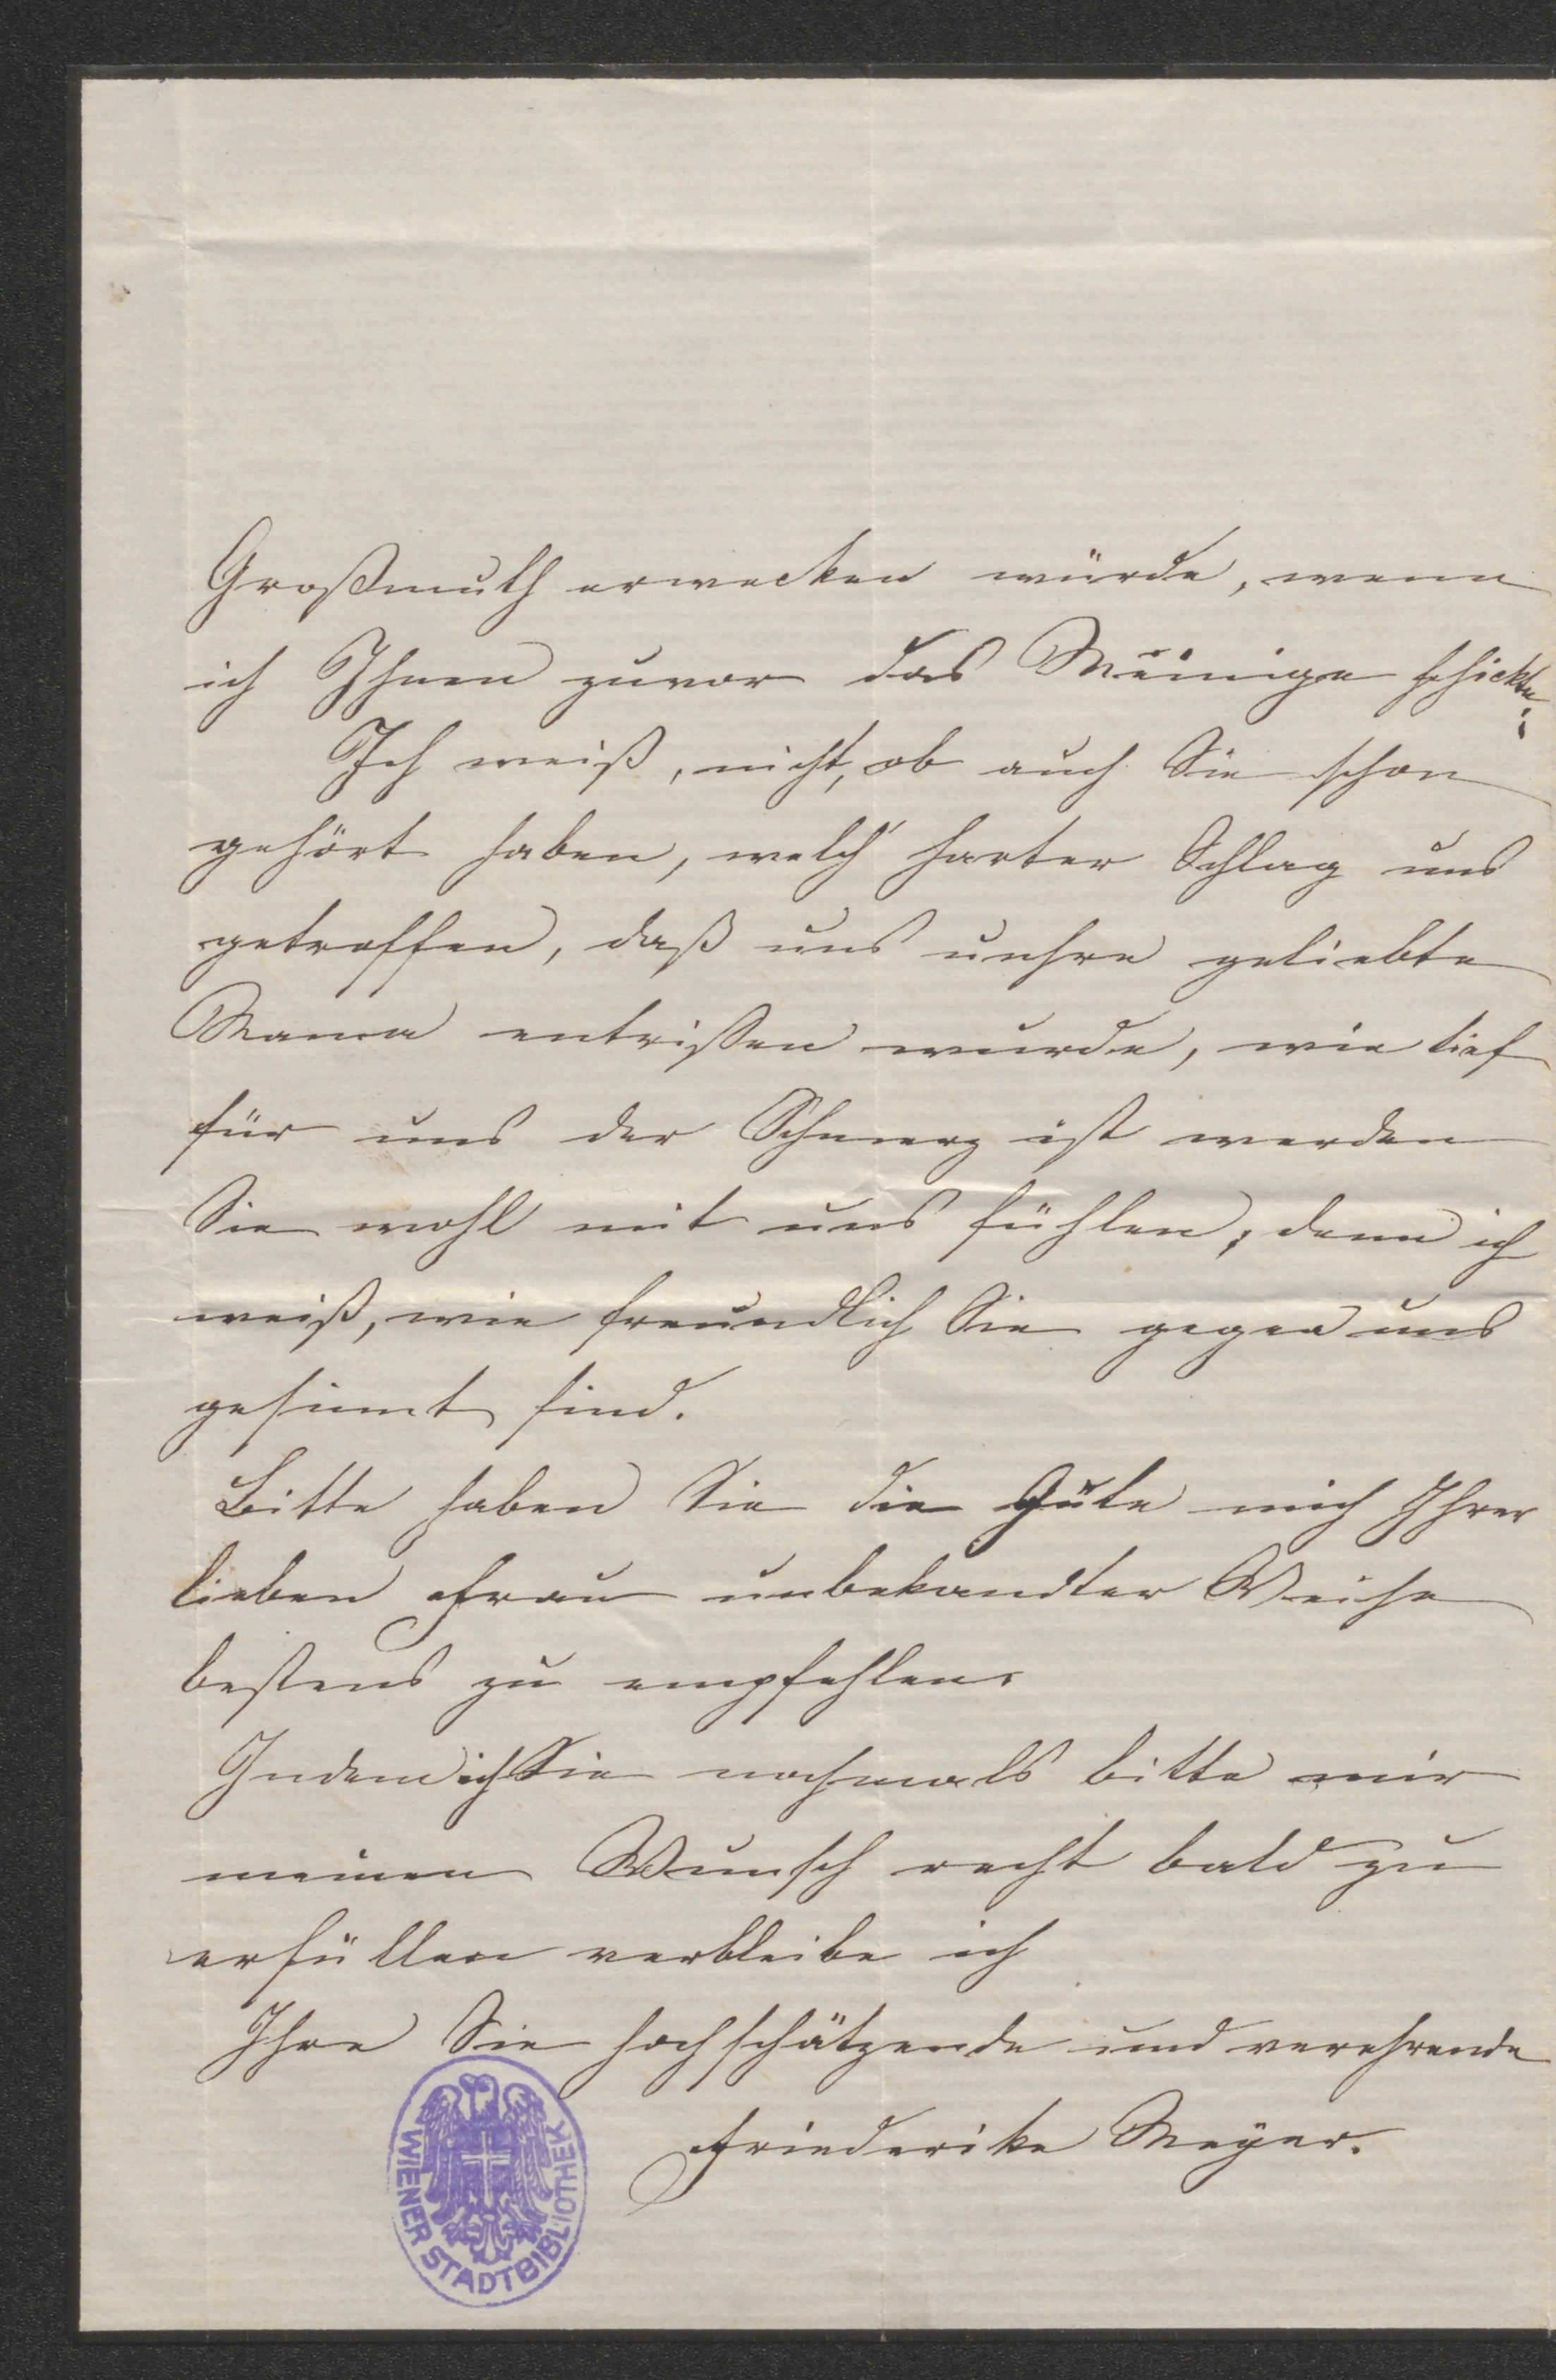 Großmuth erwecken würde, wenn
ich Ihnen zuvor das Meinige schickte.
Ich weiß, nicht, ob auch Sie schon
gehört haben, welch' harter Schlag uns
getroffen, daß uns unsre geliebte
Mama entrißen wurde, wie tief
für uns der Schmerz ist werden
Sie wohl mit uns fühlen, denn ich
weiß, wie freundlich Sie gegen uns
gesinnt sind.
Bitte haben Sie die Güte mich Ihrer
lieben Frau unbekandter Weise
bestens zu empfehlen.
Indem ich Sie nochmals bitte mir
meinen Wunsch recht bald zu
erfüllen verbleibe ich
Ihre Sie hochschätzende und verehrende
Friederike Meyer.
WIENER STADTBIBLIOTHEK